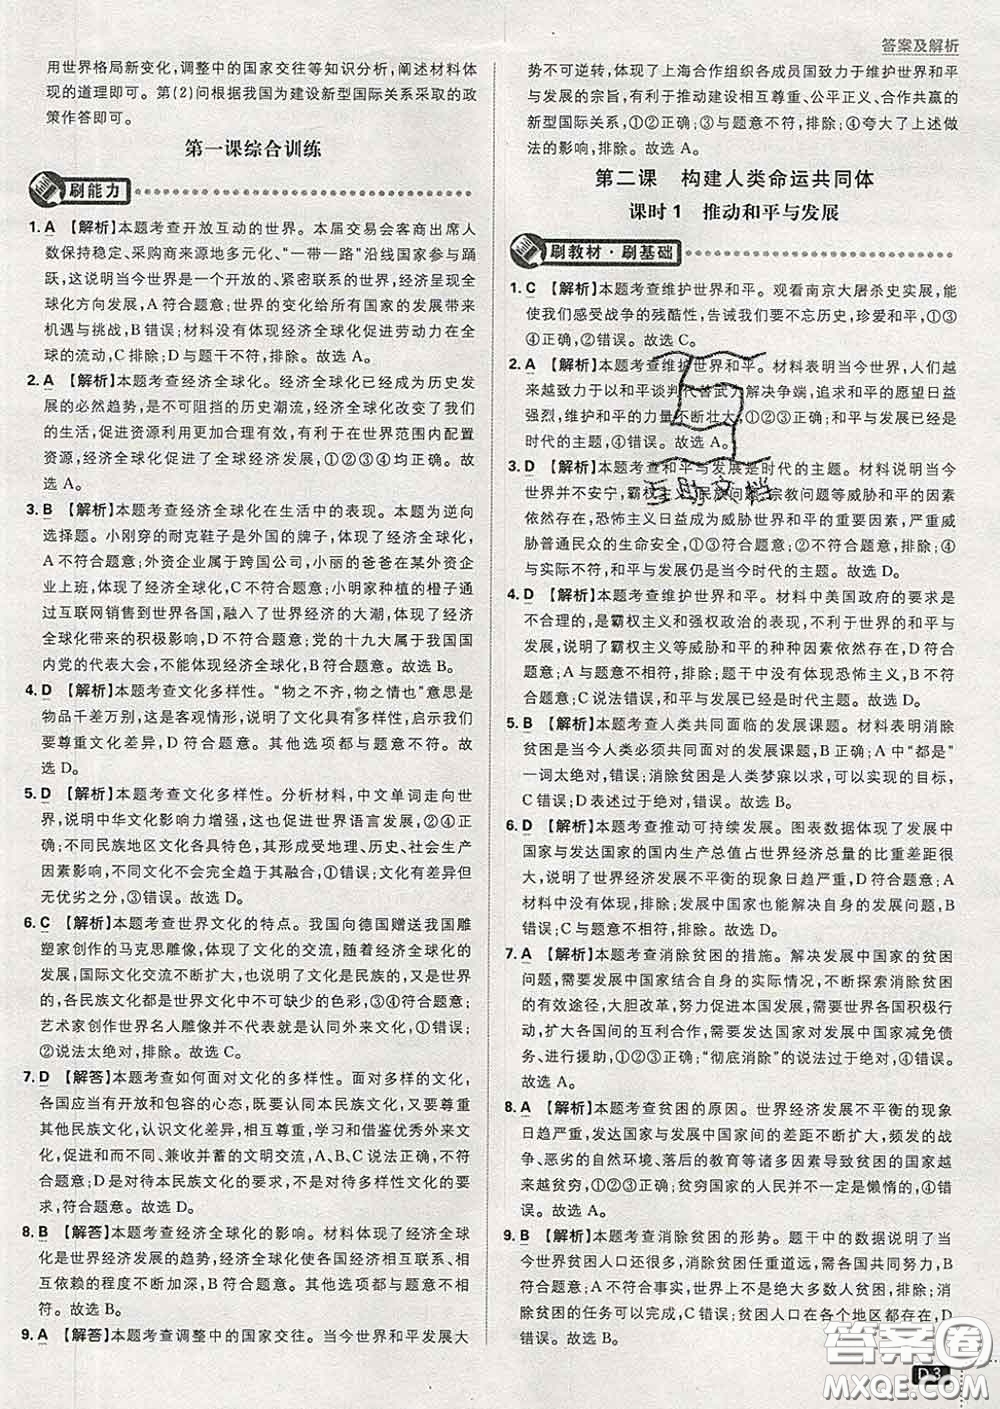 答案及解析
用世界格局新变化,调整中的国家交往等知识分析,阐述材料体
现的道理即可。第(2)问根据我国为建设新型国际关系采取的政
策作答即可。
第一课综合训练
刷能力
1. A 【解析】本题考查开放互动的世界。本届交易会客商出席人
数保持稳定、采购商来源地多元化、“一带一路”沿线国家参与踊
跃,这说明当今世界是一个开放的、紧密联系的世界,经济向全
球化方向发展,A符合题意;世界的变化给所有国家的发展带来
机遇与挑战,B错误;材料没有体现经济全球化促进劳动力在全
球的流动,C排除;D与题干不符,排除。故选A。
2. A 【解析】本题考查经济全球化。经济全球化已经成为历史发
展的必然趋势,是不可阻挡的历史潮流,经济全球化改变了我们
的生活,促进资源利用更加有效,有利于在世界范围内配置
资源,经济全球化促进了世界经济的发展,①②③④均正确。故
选A。
3. B 【解析】本题考查经济全球化在生活中的表现。本题为逆向
选择题。小刚穿的耐克鞋子是外国的牌子,体现了经济全球化,
A不符合题意;外资企业属于跨国公司,小丽的爸爸在某外资企
业上班,体现了经济全球化,C不符合题意;小明家种植的橙子通
过互联网销售到世界各国,融入了世界经济的大潮,体现了经济
全球化带来的积极影响,D不符合题意;党的十九大属于我国国
内党的代表大会,不能体现经济全球化,B符合题意。故选B。
4. D 【解析】本题考查文化多样性。“物之不齐,物之情也”意思是
物品千差万别,这是客观情形,说明了文化具有多样性,启示我们
要尊重文化差异,D符合题意。其他选项都与题意不符。故
选D。
5. D 【解析】本题考查文化多样性。分析材料,中文单词走向世
界,说明中华文化影响力增强,促进了世界语言发展,①②④正
确;不同民族地区文化各具特色,是深受地理、历史、社会生产
因素影响的结果,不同文化不会逐渐走向统一;文化有差异但
无优劣之分,③错误。故选D。
6. C 【解析】本题考查世界文化的特点。我国向德国赠送我国雕
塑家创作的马克思雕像,体现了文化的交流,随着经济全球化的
发展,国际文化交流不断扩大,说明文化是民族的,又是世界的,
各民族文化都是世界文化中不可缺少的色彩,③④符合题意;
艺术家创作世界名人雕像并没有体现文化是民族的,①错误;
②说法太绝对,排除。故选C。
7. D 【解答】本题考查如何面对文化的多样性。面对多样的文化,
各国应当有开放和包容的心态,既要认同本民族文化,又要尊重
其他民族文化,认识文化差异,相互尊重,学习和借鉴优秀外来文
化,促进不同民族、兼收并蓄的文明交流,A、B、C都不符合题
意;D是对待本民族文化的要求,不是对待不同民族文化的要
求,符合题意。故选D。
8. B 【解答】本题考查经济全球化的影响。材料体现了经济全球
化是世界经济发展的趋势,经济全球化使各国经济相互联系、相
互依赖的程度不断加深,B符合题意。其他选项都与题意不符
合。故选B。
9. A 【解答】本题考查调整中的国家交往。当今世界和平发展大
势不可逆转,体现了上海合作组织各成员国致力于维护世界和平
与发展的宗旨,有利于推动建设相互尊重、公平正义、合作共赢的
新型国际关系,①②正确;③与题意不符,排除;④夸大了上述做
法的影响,排除。故选A。
第二课 构建人类命运共同体
课时1 推动和平与发展
刷教材·刷基础
1. C 【解析】本题考查维护世界和平。观看南京大屠杀史实展,能
使我们感受战争的残酷性,告诫我们要不忘历史,珍爱和平,①③
④正确,②错误。故选C。
2. A 【解析】本题考查维护世界和平。材料表明当今世界,人们越
来越致力于以和平谈判代替武力解决争端,追求和平的愿望日益
强烈,维护和平的力量不断壮大,①②③正确;和平与发展已经是
时代的主题,④错误。故选A。
3. D 【解析】本题考查和平与发展是时代的主题。材料说明当今
世界并不安宁,霸权主义、民族问题、宗教问题等威胁和平的因素
依然存在,恐怖主义日益成为威胁世界和平的重要因素,严重威
胁普通民众的生命安全,①③符合题意;②与题意不符,排除;④
与实际不符,和平与发展仍是当今时代的主题。故选A。
4. D 【解析】本题考查维护世界和平。材料中美国政府的要求是
不合理的,是霸权主义和强权政治的表现,不利于世界的和平与
发展,说明霸权主义等威胁和平的种种因素依然存在,D符合
题意;A与题意不符,排除;题干中没有体现恐怖主义,
B排除;C说法错误,和平与发展已经是时代主题。故选D。
5. B 【解析】本题考查人类共同面临的发展课题。材料表明消除
贫困是当今人类必须共同面对的发展课题,B正确;A中“都是”
一词太绝对,错误;消除贫困是人类梦寐以求,可以实现的目标,
C错误;D表述过于绝对,错误。故选B。
6. D 【解析】本题考查推动可持续发展。图表数据体现了发展中
国家与发达国家的国内生产总值占世界经济总量的比重差距很
大,说明了世界发展不平衡的现象日趋严重,D符合题意;A
材料中没有体现,排除;发展中国家也能解决自身的发展问题,B
错误;C与题意无关,排除。故选D。
7. A 【解析】本题考查消除贫困的措施。解决发展中国家的贫困
问题,需要发展中国家结合自身的实际情况,不断探索消除贫困
的有效途径,大胆改革,努力促进本国发展;需要各国积极行
动,扩大各国间的互利合作,需要发达国家对发展中国家减免债
务、进行援助,①②③正确;“彻底消除”的说法过于绝对,④错误。
故选A。
8. A 【解析】本题考查贫困的原因。世界经济发展不平衡的现象
日趋严重,发达国家与发展中国家间的差距不断扩大,频发的战
争、恶劣的自然环境、落后的教育等诸多因素导致贫困的发生,
①②③正确;贫穷国家的人民并不一定是懒惰的,④错误。故
选A。
9. B 【解析】本题考查消除贫困的形势。题干中的数据说明了当
今世界贫困人口还很多,消除贫困任重道远,需要各国共同努力,
B符合题意;A不符合事实,世界上不是大多数人贫困,排除;消
除贫困的任务可以完成,C错误;贫困人口在各个地区都存在,D
错误。故选B。
互助文档
答案圈
MXQE.COM
D-3